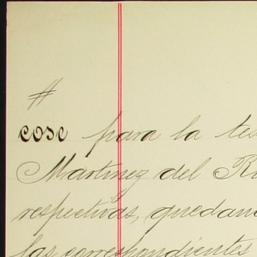 #
cose para la tes
Martinez del R
respectivas, quedan
las correspondientes